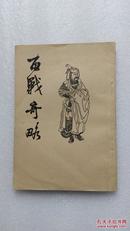 百戰奇略